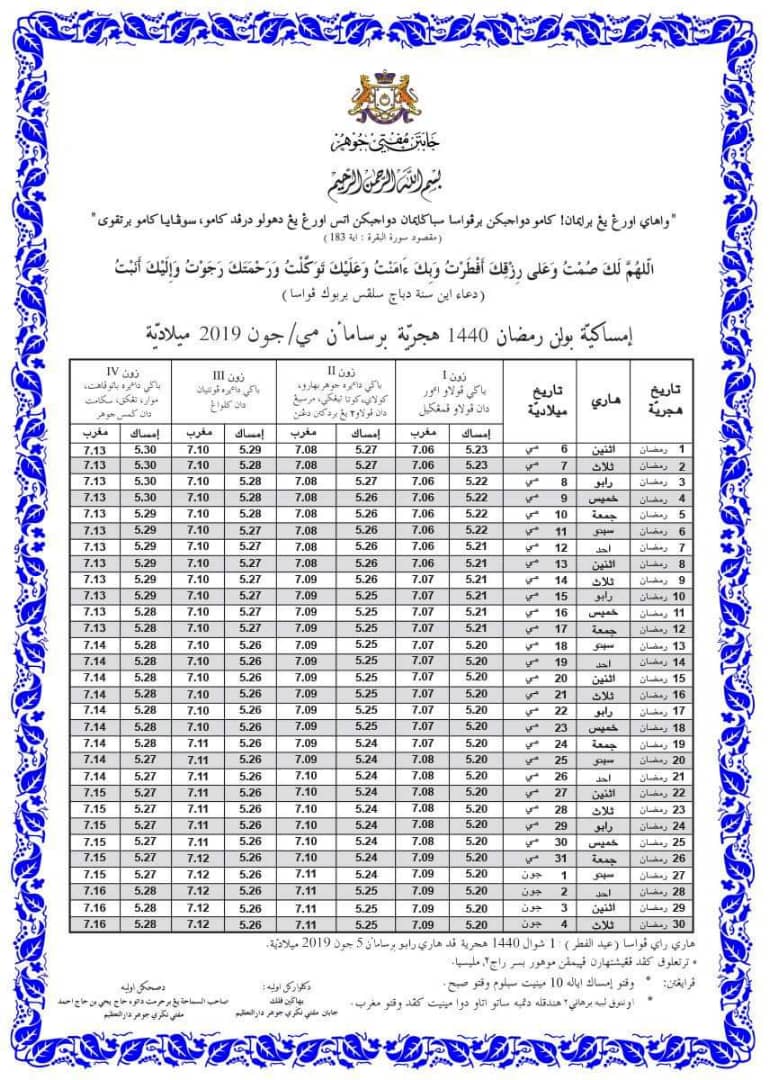 جابتن مفتي جوهر
بسم الله الرحمن الرحيم
"واهاي اورڠ يڠ برايمان! كامو دواجبكن برڤواسا سباݢايمان دواجبكن اتس اورڠ يڠ دهولو درڤد كامو، سوڤايا كامو برتقوى"
(مقصود سورة البقرة : اية 183)
اللهُمَّ لَكَ صُمْتُ وَعَلى رِزْقِكَ أَفْطَرْتُ وَبِكَ ءَامَنْتُ وَعَلَيْكَ تَوَكَّلْتُ وَرَحْمَتَكَ رَجَوْتُ وَإِلَيْكَ أَنَبْتُ
(دعاء اين سنة دباچ سلڤس بربوك ڤواسا)
إمساكيّة بولن رمضان 1440 هجريّة برسامأن مي/جون 2019 ميلاديّة
تاريخ هجريّة هاري تاريخ ميلاديّة
زون I
باكي ڤولاو اءور
دان ڤولاو ڤمڠݢيل
زون II
باكي دائيره جوهر بهارو،
كولاي، كوتا تيڠݢي، مرسيڠ
دان ڤولاو٢ يڠ بردكتن دڠن
زون III
باكي دائيره ڤونتيان
دان كلواڠ
زون IV
باكي دائيره باتوڤاهت،
موار، تڠكق، سݢامت
دان ݢمس جوهر
إمساك مغرب إمساك مغرب إمساك مغرب إمساك مغرب
1 رمضان اثنين 6 مي 5.23 7.06 5.27 7.08 5.29 7.10 5.30 7.13
2 رمضان ثلاث 7 مي 5.23 7.06 5.27 7.08 5.28 7.10 5.30 7.13
3 رمضان رابو 8 مي 5.22 7.06 5.27 7.08 5.28 7.10 5.30 7.13
4 رمضان خميس 9 مي 5.22 7.06 5.26 7.08 5.28 7.10 5.30 7.13
5 رمضان جمعة 10 مي 5.22 7.06 5.26 7.08 5.28 7.10 5.29 7.13
6 رمضان سبتو 11 مي 5.22 7.06 5.26 7.08 5.27 7.10 5.29 7.13
7 رمضان احد 12 مي 5.21 7.06 5.26 7.08 5.27 7.10 5.29 7.13
8 رمضان اثنين 13 مي 5.21 7.06 5.26 7.08 5.27 7.10 5.29 7.13
9 رمضان ثلاث 14 مي 5.21 7.07 5.26 7.09 5.27 7.10 5.29 7.13
10 رمضان رابو 15 مي 5.21 7.07 5.25 7.09 5.27 7.10 5.29 7.13
11 رمضان خميس 16 مي 5.21 7.07 5.25 7.09 5.27 7.10 5.28 7.13
12 رمضان جمعة 17 مي 5.21 7.07 5.25 7.09 5.27 7.10 5.28 7.13
13 رمضان سبتو 18 مي 5.20 7.07 5.25 7.09 5.26 7.10 5.28 7.14
14 رمضان احد 19 مي 5.20 7.07 5.25 7.09 5.26 7.10 5.28 7.14
15 رمضان اثنين 20 مي 5.20 7.07 5.25 7.09 5.26 7.10 5.28 7.14
16 رمضان ثلاث 21 مي 5.20 7.07 5.25 7.09 5.26 7.10 5.28 7.14
17 رمضان رابو 22 مي 5.20 7.07 5.25 7.09 5.26 7.10 5.28 7.14
18 رمضان خميس 23 مي 5.20 7.07 5.25 7.09 5.26 7.10 5.28 7.14
19 رمضان جمعة 24 مي 5.20 7.07 5.24 7.09 5.26 7.11 5.28 7.14
20 رمضان سبتو 25 مي 5.20 7.08 5.24 7.09 5.26 7.11 5.27 7.14
21 رمضان احد 26 مي 5.20 7.08 5.24 7.10 5.26 7.11 5.27 7.14
22 رمضان اثنين 27 مي 5.20 7.08 5.24 7.10 5.26 7.11 5.27 7.15
23 رمضان ثلاث 28 مي 5.20 7.08 5.24 7.10 5.26 7.11 5.27 7.15
24 رمضان رابو 29 مي 5.20 7.08 5.24 7.10 5.26 7.11 5.27 7.15
25 رمضان خميس 30 مي 5.20 7.08 5.24 7.10 5.26 7.11 5.27 7.15
26 رمضان جمعة 31 مي 5.20 7.09 5.24 7.10 5.26 7.12 5.27 7.15
27 رمضان سبتو 1 جون 5.20 7.09 5.24 7.11 5.26 7.12 5.27 7.15
28 رمضان احد 2 جون 5.20 7.09 5.24 7.11 5.26 7.12 5.28 7.16
29 رمضان اثنين 3 جون 5.20 7.09 5.25 7.11 5.26 7.12 5.28 7.16
30 رمضان ثلاث 4 جون 5.20 7.09 5.25 7.11 5.26 7.12 5.28 7.16
هاري راي ڤواسا (عيد الفطر) : 1 شوال 1440 هجرية ڤد هاري رابو برسامأن 5 جون 2019 ميلاديّة.
* ترتعلوق كڤد ڤڠيشتهارن ڤڽيمڤن موهور بسر راج٢، مليسيا.
ڤرايڠتن: * وقتو إمساك اياله 10 مينيت سبلوم وقتو صبح.
* اونتوق لبيه برهاتي٢ هندقله دتمبه ساتو اتاو دوا مينيت كڤد وقتو مغرب.
دكلواركن اوليه :
بهاݢين فلك
جابتن مفتي نݢري جوهر دارالتعظيم
دصحكن اوليه
صاحب السماحة يڠ برحرمت داتوء حاج يحيى بن حاج احمد
مفتي نݢري جوهر دارالتعظيم